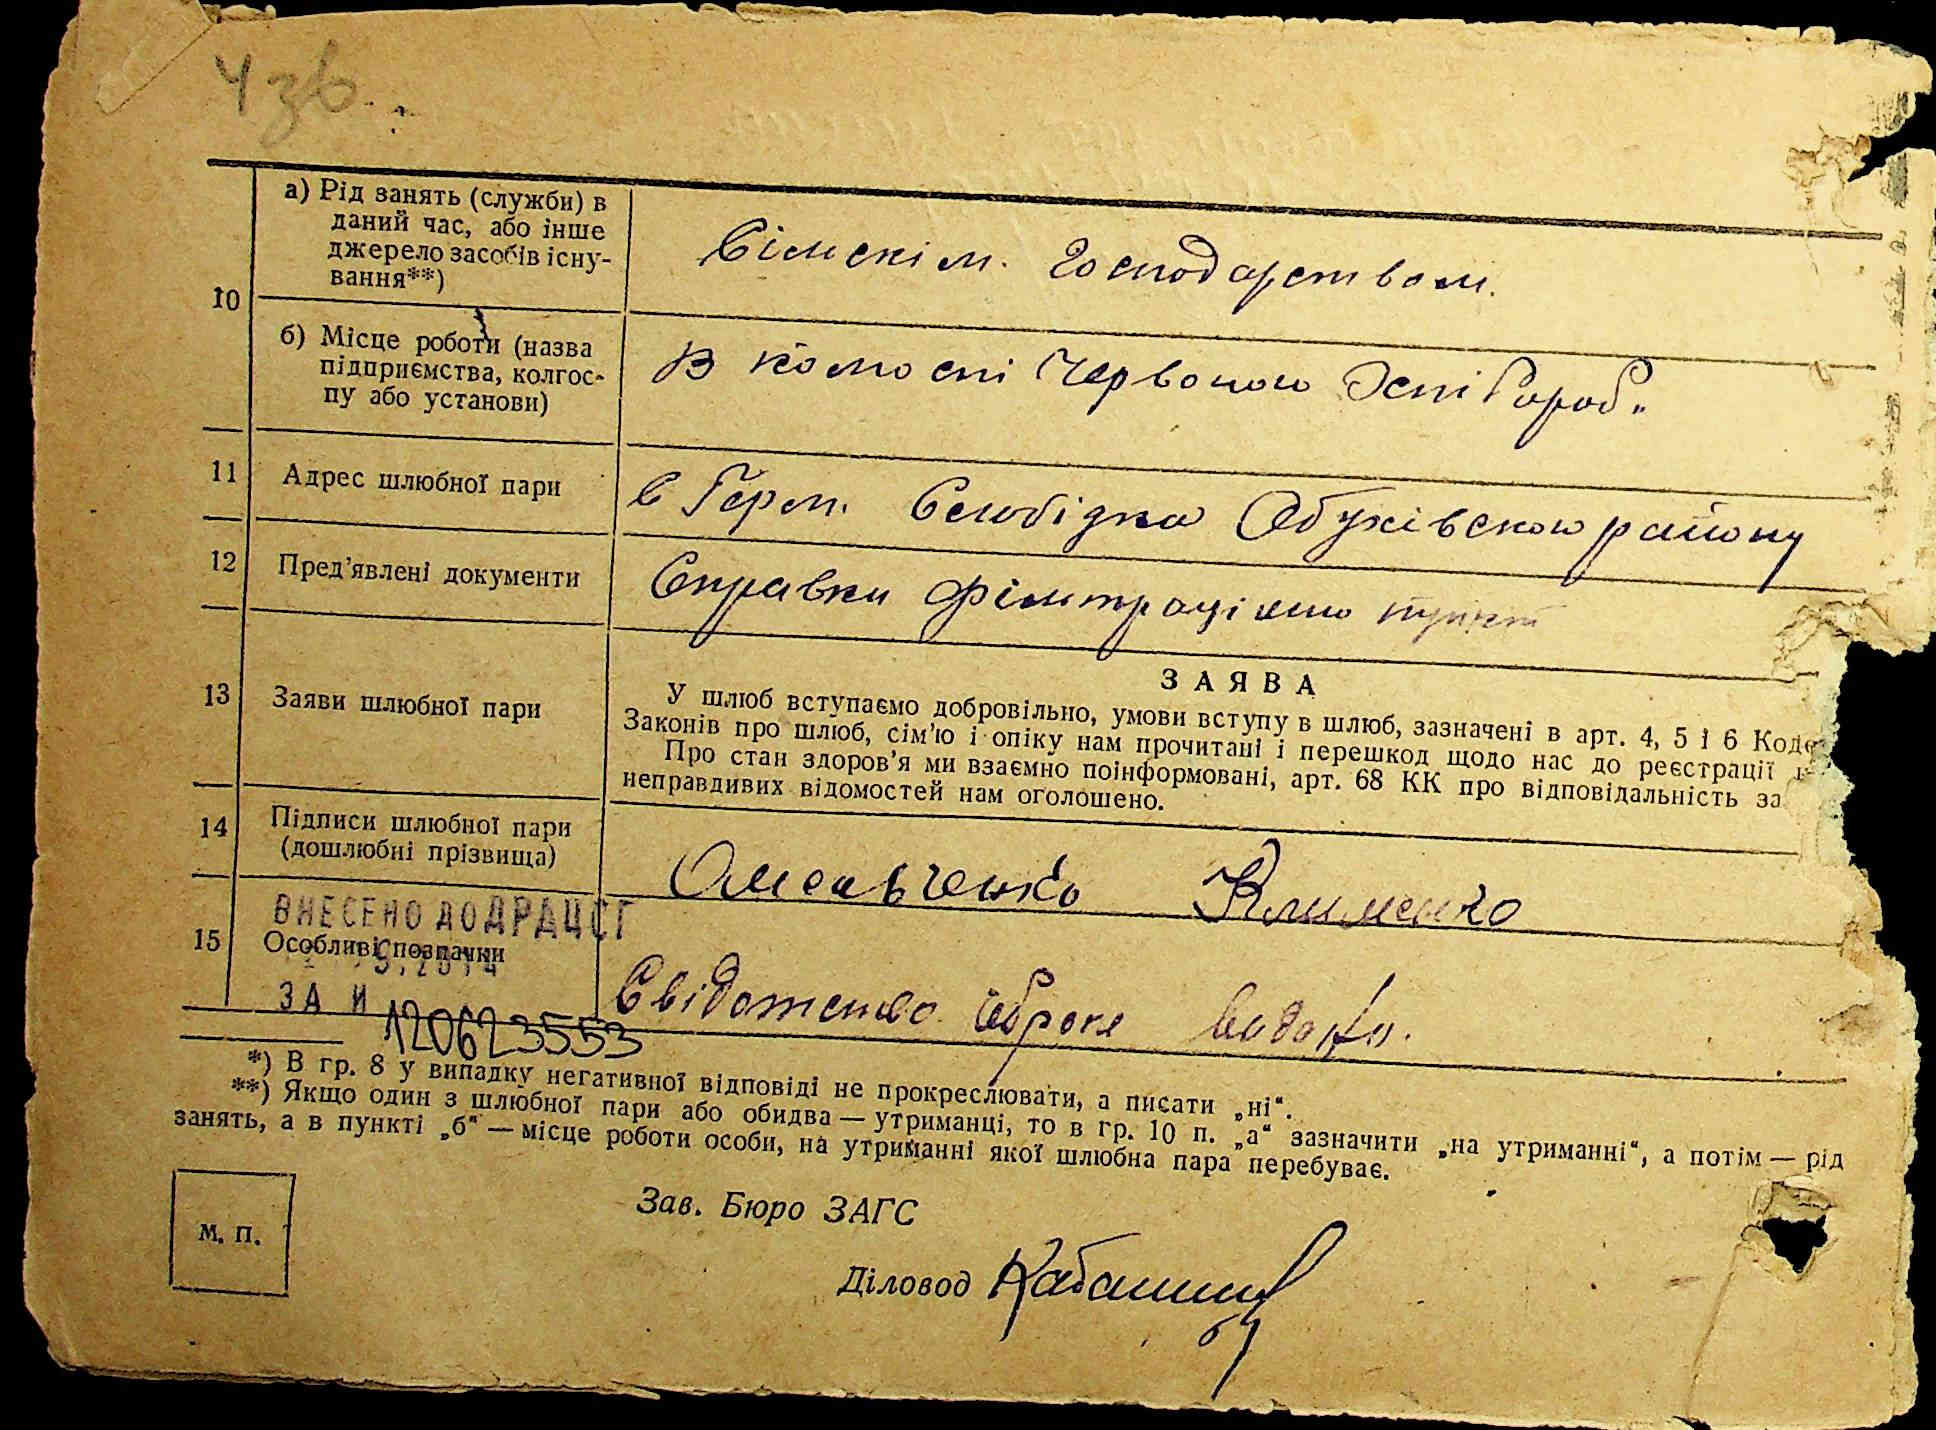 436
10
а) Рід занять (служби) в
даний час, або інше
джерело засобів існу-
вання**)
Сільскім. Господарством.
б) Місце роботи (назва
підприємства, колгос-
пу або установи)
В колгоспі Червоною
11
Адрес шлюбної пари
в Герм. Слобідка Обухівскою району
12
Пред'явлені документи
Справки фільтраціяно пункт
13
Заяви шлюбної пари
ЗАЯВА
У шлюб вступаємо добровільно, умови вступу в шлюб, зазначені в арт. 4, 5 і 6 Коде
Законів про шлюб, сім'ю і опіку нам прочитані і перешкод щодо нас до реєстрації
Про стан здоров'я ми взаємно поінформовані, арт. 68 КК про відповідальність за
неправдивих відомостей нам оголошено.
14
Підписи шлюбної пари
(дошлюбні прізвища)
Омельченко Клименко
15
Особливі позначки
ВНЕСЕНО ДО ДРАЦСГ
ЗА И 120623553
Свідотство
*) В гр. 8 у випадку негативної відповіді не прокреслювати, а писати „ні“.
**) Якщо один з шлюбної пари або обидва — утриманці, то в гр. 10 п. „а“ зазначити „на утриманні“, а потім — рід
занять, а в пункті „б“ — місце роботи особи, на утриманні якої шлюбна пара перебуває.
М. П.
Зав. Бюро ЗАГС
Діловод